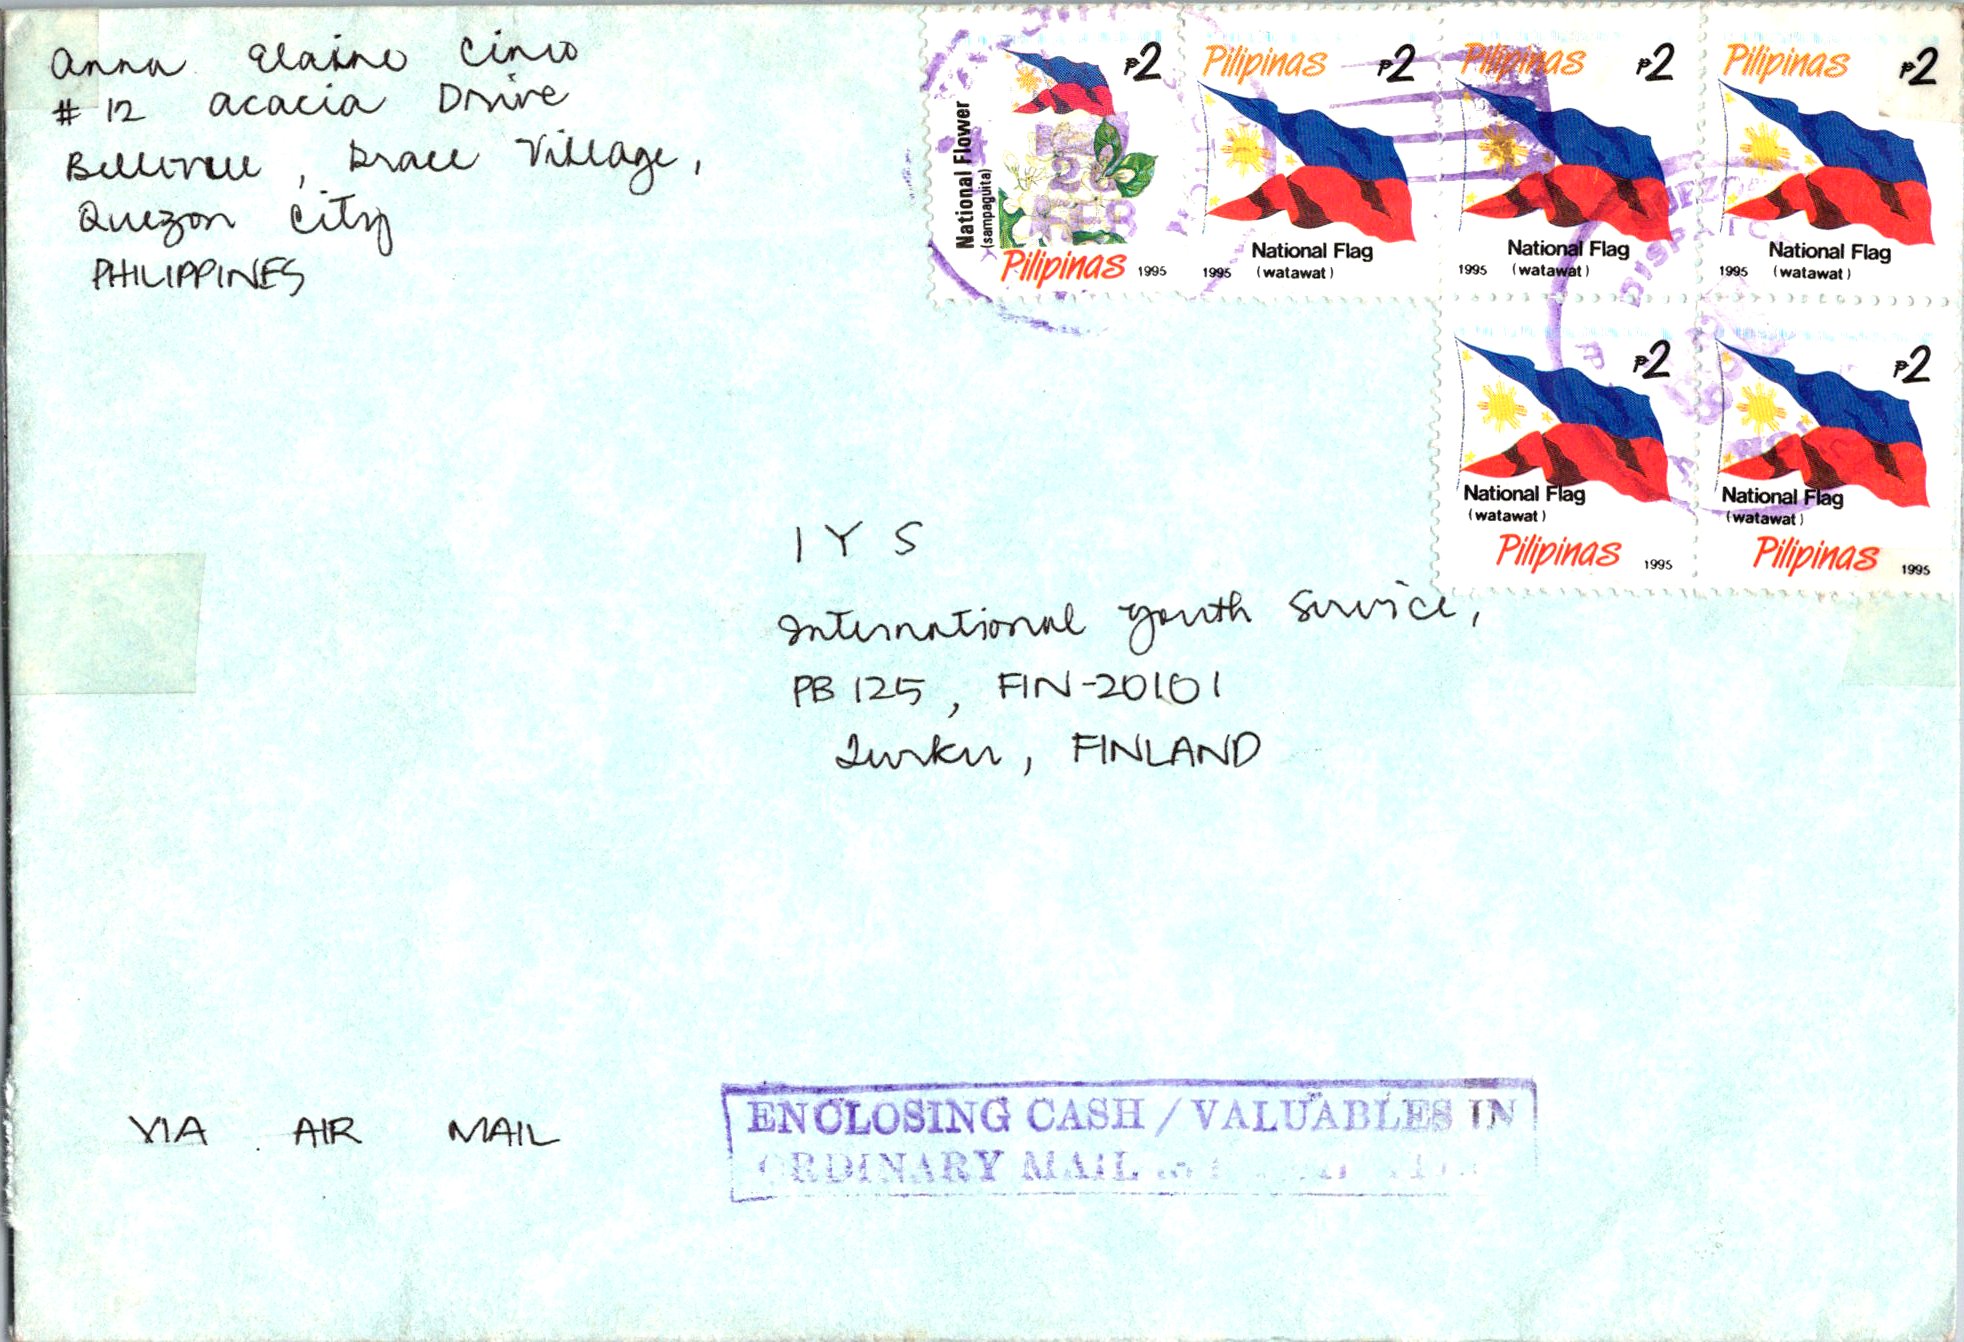 Anna Elaine Cinco
# 12 Acacia Drive
Bellevue, Grace Village,
Quezon City
PHILIPPINES
National Flower
(sampaguita)
₱2
Pilipinas 1995
Pilipinas ₱2
National Flag
1995 (watawat)
Pilipinas ₱2
National Flag
1995 (watawat)
Pilipinas ₱2
National Flag
1995 (watawat)
₱2
National Flag
(watawat)
Pilipinas 1995
₱2
National Flag
(watawat)
Pilipinas 1995
26
FEB
QUEZON
IYS
International Youth Service,
PB 125, FIN-20101
Turku, FINLAND
VIA AIR MAIL
ENCLOSING CASH / VALUABLES IN
ORDINARY MAIL